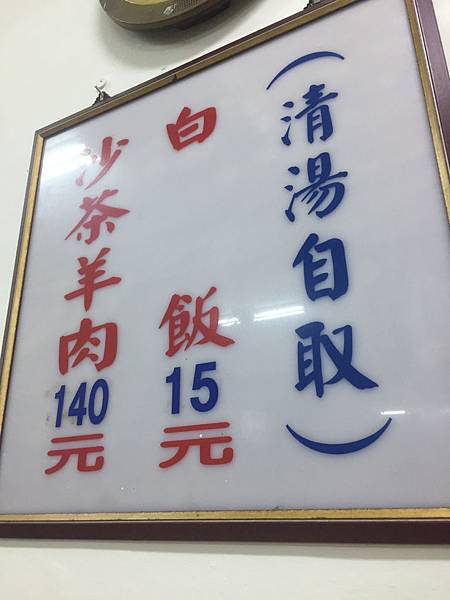 （清湯自取）
白飯15元
沙茶羊肉140元